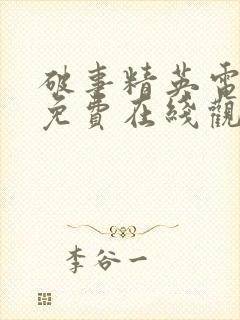 破事精英電
免費在綫觀
李谷一